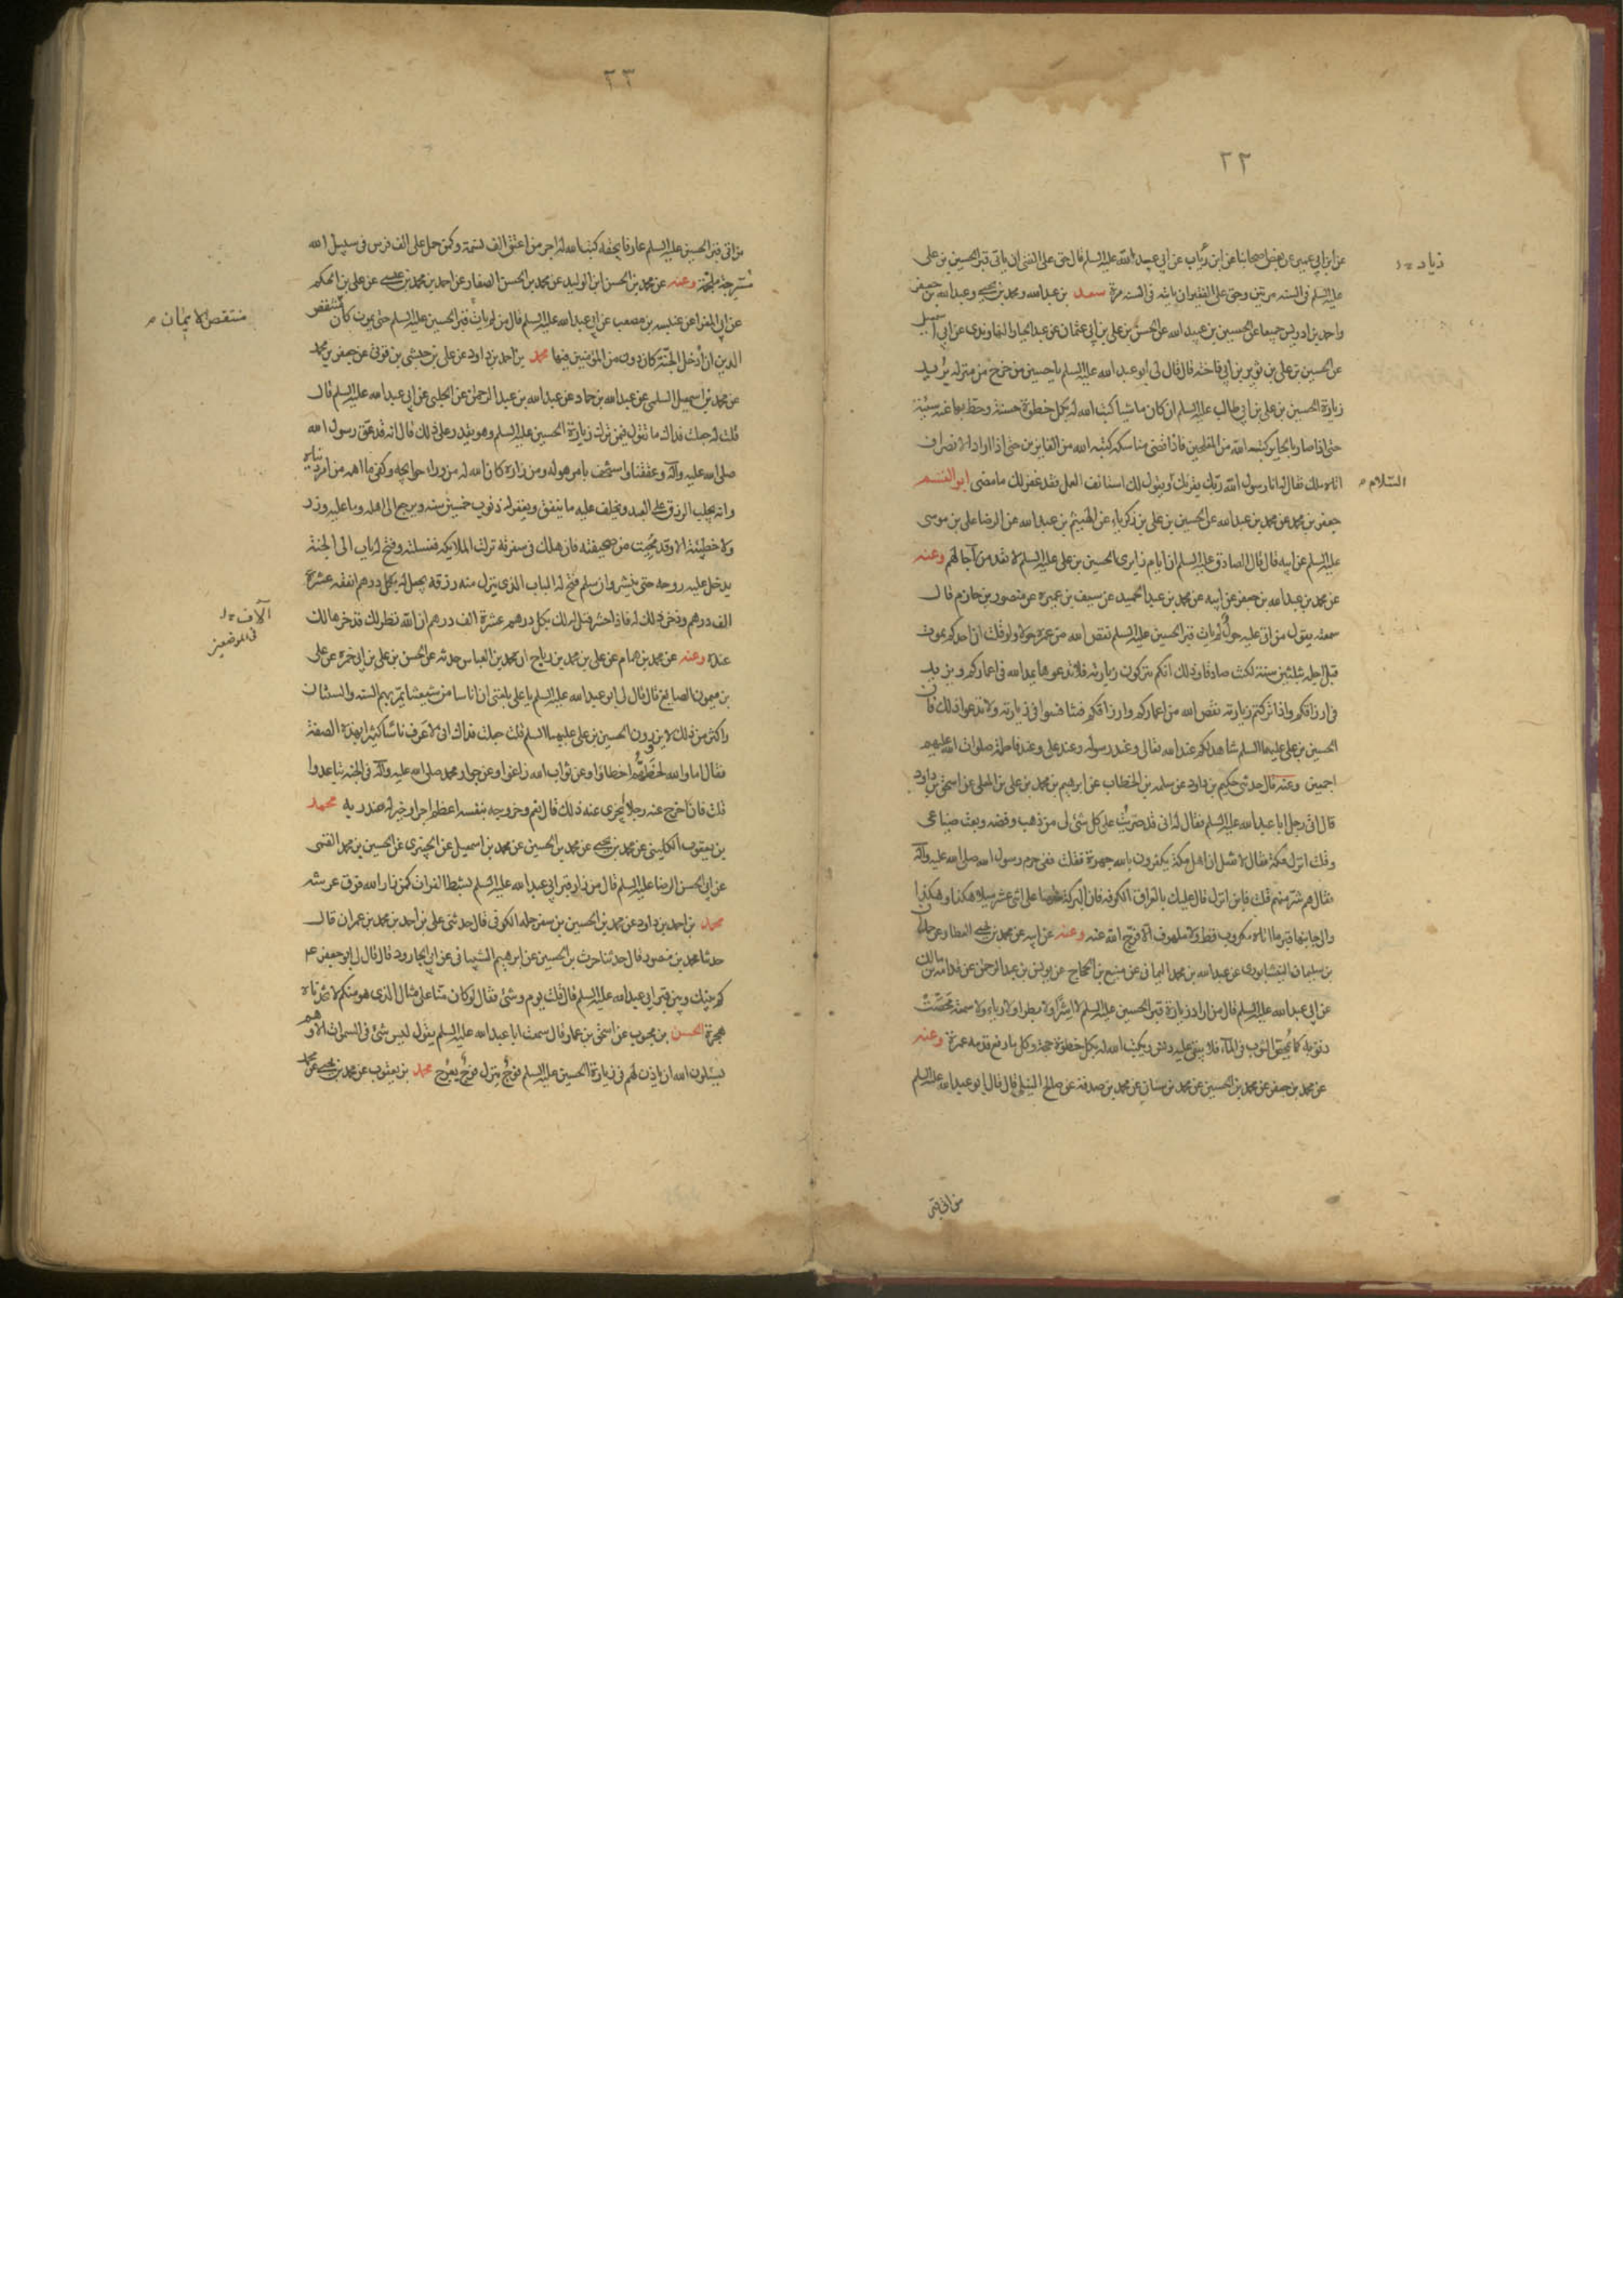 ٢٢
عن ابن ابي عمير عن بعض اصحابنا عن ابن رئاب عن ابي عبد الله عليه السلم قال حق على الغنى ان ياتى قبر الحسين بن على
زياد
عليه السلم فى السنه مرتين وحق على الفقير ان ياتيه فى السنه مرة سعد بن عبد الله ومحمد بن يحيى وعبد الله بن جعفر
واحمد بن ادريس جميعا عن الحسين بن عبيد الله عن الحسن بن على بن ابى عثمان عن عبد الجبار النهاوندى عن ابى اسمعيل
عن الحسين بن على بن ثوير بن ابى فاخته قال قال لى ابو عبد الله عليه السلم يا حسين من خرج من منزله يريد
زيارة الحسين بن على بن ابى طالب عليه السلم ان كان ماشيا كتب الله له بكل خطوة حسنة وحط بها عنه سيئة
حتى اذا صار بالحاير كتبه الله من المفلحين فاذا قضى مناسكه كتبه الله من الفايزين حتى اذا اراد الانصراف
اتاه ملك فقال له انا رسول الله ربك يقرئك ويقول لك استانف العمل فقد غفر لك ما مضى ابو القسم
السلام
جعفر بن محمد عن محمد بن عبد الله عن الحسين بن على بن زكرياء عن الهيثم بن عبد الله عن الرضا على بن موسى
عليه السلم عن ابيه قال قال الصادق عليه السلم ان ايام زايرى الحسين بن على عليه السلم لا تعد من آجالهم وعنه
عن محمد بن عبد الله بن جعفر عن ابيه عن محمد بن عبد الحميد عن سيف بن عميرة عن منصور بن حازم قال
سمعته يقول من اتى عليه حول لم يات قبر الحسين عليه السلم نقص الله من عمره حولا ولو قلت ان احدكم يموت
قبل اجله بثلثين سنة لكنت صادقا وذلك انكم تتركون زيارته فلا تدعوها يمد الله فى اعماركم ويزيد
فى ارزاقكم واذا تركتم زيارته نقص الله من اعماركم وارزاقكم فتنافسوا فى زيارته ولا تدعوا ذلك فان
الحسين بن على عليهما السلم شاهد لكم عند الله تعالى وعند رسوله وعند على وعند فاطمة صلوات الله عليهم
اجمعين وعنه قال حدثنى حكيم بن داود عن سلمه بن الخطاب عن ابرهيم بن محمد بن على بن المعلى عن اسحق بن داود
قال اتى رجل ابا عبد الله عليه السلم فقال له انى قد ضربت على كل شئ لى من ذهب وفضه وبعت ضياعى
وقلت انزل مكة فقال لا تفعل ان اهل مكة يكفرون بالله جهرة فقلت ففى حرم رسول الله صلى الله عليه وآله
فقال هم شر منهم قلت فاين انزل قال عليك بالعراق الكوفه فان البركة منها على اثنى عشر ميلا هكذا وهكذا
والى جانبها قبر ما اتاه مكروب قط ولا ملهوف الا فرج الله عنه وعنه عن ابيه عن محمد بن يحيى العطار عن حمدان
بن سليمان النيشابورى عن عبد الله بن محمد اليمانى عن منيع بن الحجاج عن يونس بن عبد الرحمن عن قدامه بن مالك
عن ابى عبد الله عليه السلم قال من اراد زيارة قبر الحسين عليه السلم لا اشرا ولا بطرا ولا رياء ولا سمعة محصت
ذنوبه كما يمحص الثوب فى الماء فلا يبقى عليه دنس ويكتب الله له بكل خطوة حجة وكل ما رفع قدمه عمرة وعنه
عن محمد بن جعفر عن محمد بن الحسين عن محمد بن سنان عن محمد بن صدقة عن صالح النيلى قال قال ابو عبد الله عليه السلم
من اتى قبر
٢٣
من اتى قبر الحسين عليه السلم عارفا بحقه كتب الله له اجر من اعتق الف نسمة وكمن حمل على الف فرس فى سبيل الله
مسرجة ملجمة وعنه عن محمد بن الحسن ابن الوليد عن محمد بن الحسن الصفار عن احمد بن محمد بن عيسى عن على بن الحكم
عن ابى المغرا عن عنبسه بن مصعب عن ابى عبد الله عليه السلم قال من لم يات قبر الحسين عليه السلم حتى يموت كان منتقص
منتقص الايمان
الدين ان ادخل الجنة كان دون من المؤمنين فيها محمد بن احمد بن داود عن على بن حبشى بن قونى عن جعفر بن محمد
عن محمد بن اسمعيل السلمى عن عبد الله بن حماد عن عبد الله بن عبد الرحمن عن الحلبى عن ابى عبد الله عليه السلم قال
قلت له جعلت فداك ما تقول فيمن ترك زيارة الحسين عليه السلم وهو يقدر على ذلك قال انه قد عق رسول الله
صلى الله عليه وآله وعقنا واستخف بامر هو له ومن زاره كان الله له من وراء حوايجه وكفى ما اهمه من امر دنياه
وانه يجلب الرزق على العبد ويخلف عليه ما ينفق ويغفر له ذنوب خمسين سنه ويرجع الى اهله وما عليه وزر
ولا خطيئة الا وقد محيت من صحيفته فان هلك فى سفرته نزلت الملايكه فغسلته وفتح له باب الى الجنة
يدخل عليه روحه حتى ينشر وان سلم فتح له الباب الذى ينزل منه رزقه يجعل له بكل درهم انفقه عشرة
الف درهم وذخر ذلك له فاذا حشر قيل له لك بكل درهم عشرة الف درهم ان الله نظر لك فذخرها لك
آلاف
فى الموضعين
عنده وعنه عن محمد بن همام عن على بن محمد بن رباح ان محمد بن العباس حدثه عن الحسن بن على بن ابى حمزه عن على
بن ميمون الصايغ قال قال لى ابو عبد الله عليه السلم يا على بلغنى ان اناسا من شيعتنا تمر بهم السنه والسنتان
واكثر من ذلك لا يزورون الحسين بن على عليهما السلم قلت جعلت فداك انى لاعرف ناسا كثيرا بهذه الصفة
فقال اما والله لحظهم اخطاؤا وعن ثواب الله زاغوا وعن جوار محمد صلى الله عليه وآله فى الجنه تباعدوا
قلت فان اخرج عنه رجلا يجزى عنه ذلك قال نعم وخروجه بنفسه اعظم اجرا وخير له عند ربه محمد
بن يعقوب الكلينى عن محمد بن يحيى عن محمد بن الحسين عن محمد بن اسمعيل عن الخيبرى عن الحسين بن محمد القمى
عن ابى الحسن الرضا عليه السلم قال من زار قبر ابى عبد الله عليه السلم بشط الفرات كمن زار الله فوق عرشه
محمد بن احمد بن داود عن محمد بن الحسين بن سفرجله الكوفى قال حدثنى على بن احمد بن محمد بن عمران قال
حدثنا محمد بن منصور قال حدثنا حرث بن الحسين عن ابرهيم الشيبانى عن ابى الجارود قال قال لى ابو جعفر ع
كم بينك وبين قبر ابى عبد الله عليه السلم قال قلت يوم وشئ فقال لو كان منا على مثال الذى هو منكم لاتخذناه
هجرة الحسن بن محبوب عن اسحق بن عمار قال سمعت ابا عبد الله عليه السلم يقول ليس شئ فى السموات الا وهم
يسئلون الله ان ياذن لهم فى زيارة الحسين عليه السلم فوج ينزل فوج يعرج محمد بن يعقوب عن محمد بن يحيى عن محمد